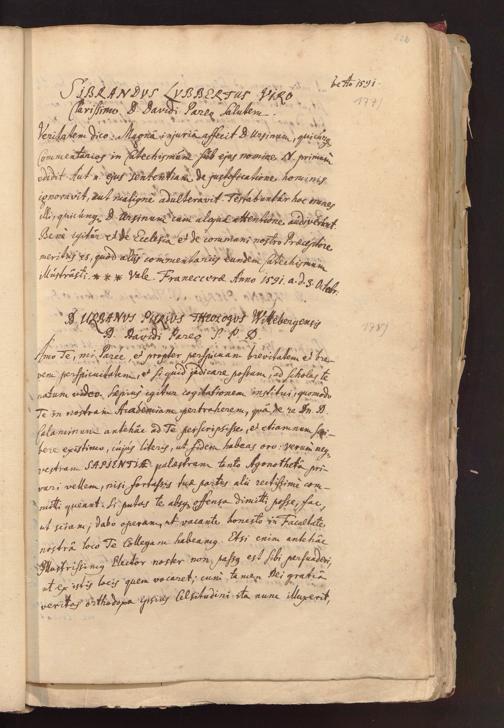 SIBRANDVS LVBBERTVS VIRO
Clarissimo D. Davidi Pareo Salutem.
Veritatem dico. Magna injuria affecit D. Ursinum, quicunq;
Commentarios in Catechismum sub ejus nomine primum
edidit. Aut n. ejus sententiam de justificatione hominis
ignoravit, aut maligne adulteravit. Testabuntur hoc omnes
illi, quicunq; D. Ursinum cum aliqua attentione audiverunt.
Bene igitur et de Ecclesia et de communi nostro Præceptore
meritus es, quod aliis commentariis eundem Catechismum
illustrasti. * * * Vale. Franeceræ Anno 1591. a. d. 3. Octobr.
8br. 1591.
177)
D. URBANVS PIERIUS THEOLOGVS Wittebergensis
D. Davidi Pareo S. P. D.
178)
Amo Te, mi Paree, et propter perspicuam brevitatem et bre-
vem perspicuitatem, et si quid judicare possum, ad scholas te
natum video. Sæpius igitur cogitationem institui, quomodo
Te in nostram Academiam pertraherem, quâ de re Dn. D.
Calaminum antehac ad Te perscripsisse, et etiamnum scri-
bere existimo, cujus literis, ut fidem habeas oro. verum neq;
vestram SAPIENTIÆ palæstram tanto Agonotheta pri-
vari vellem, nisi fortassis tuæ partes alii rectissime com-
mitti queant. Si putas te absq; offensa dimitti posse, fac,
ut sciam; dabo operam, ut vacante honesto in Facultate
nostrâ loco Te Collegam habeamus. Etsi enim antehac
Illustrissimus Elector noster non passus est sibi persuaderi,
ut ex istis locis quem vocaret; cum tamen Dei gratiâ
veritas orthodoxa ipsius Celsitudini ita nunc illuxerit,